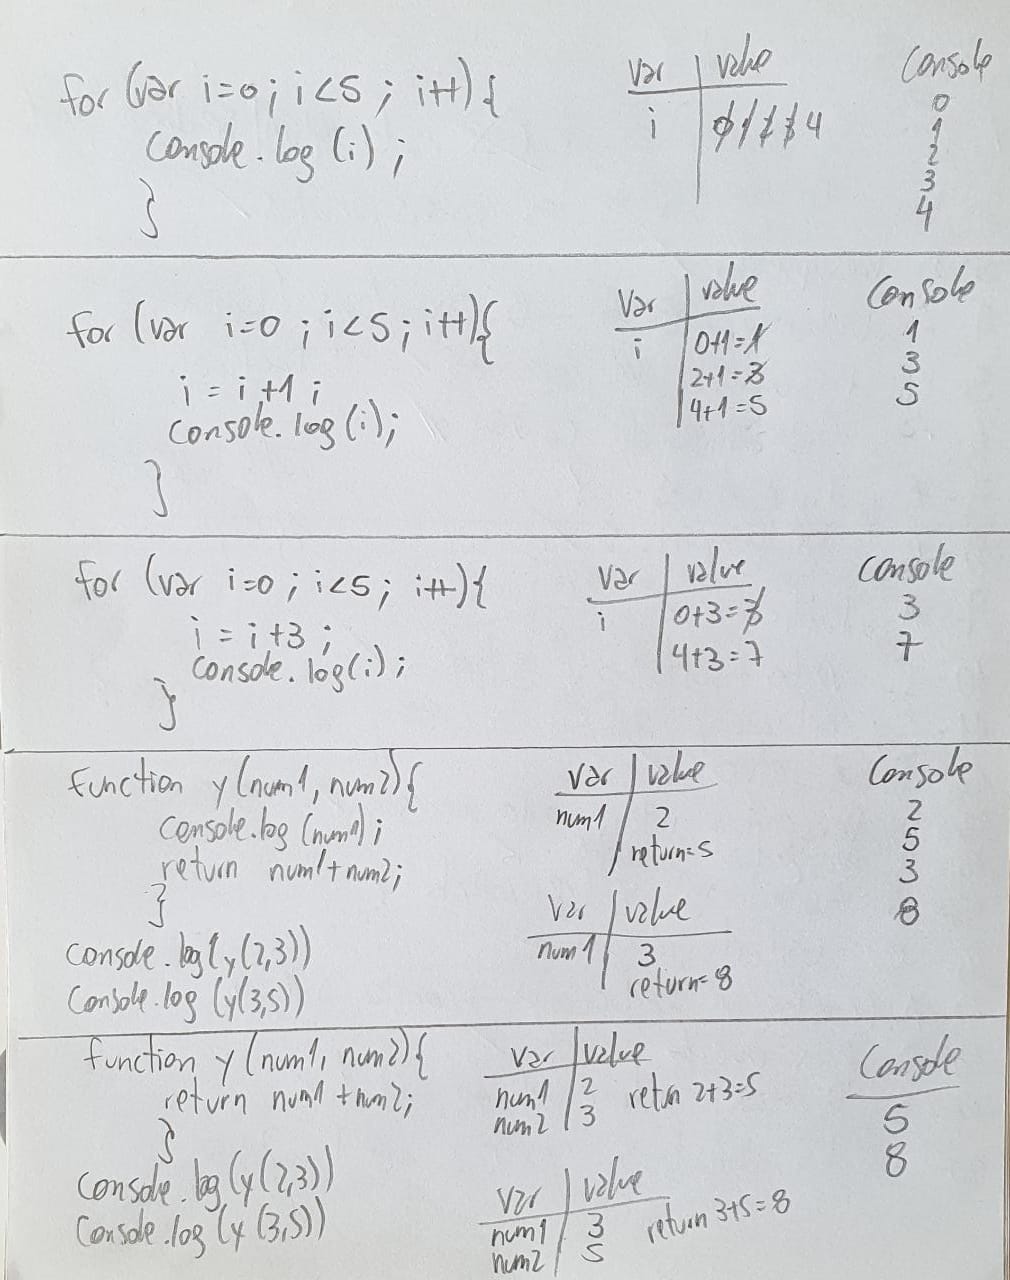 for (var i=0; i<5; i++){
console.log (i);
}
var value
i 0 1 2 3 4
Console
0
1
2
3
4
for (var i=0; i<5; i++){
i = i+1;
console.log (i);
}
Var value
i 0+1=1
2+1=3
4+1=5
Console
1
3
5
for (var i=0; i<5; i++){
i = i+3;
console.log(i);
}
Var value
i 0+3=3
4+3=7
Console
3
7
function y(num1, num2){
console.log (num1);
return num1+num2;
}
console.log(y(2,3))
console.log (y(3,5))
Var value
num1 2
return=5
Var value
num1 3
return=8
Console
2
5
3
8
function y (num1, num2){
return num1+num2;
}
console.log (y(2,3))
Console.log (y (3,5))
Var value
num1 2 return 2+3=5
num2 3
Var value
num1 3 return 3+5=8
num2 5
Console
5
8